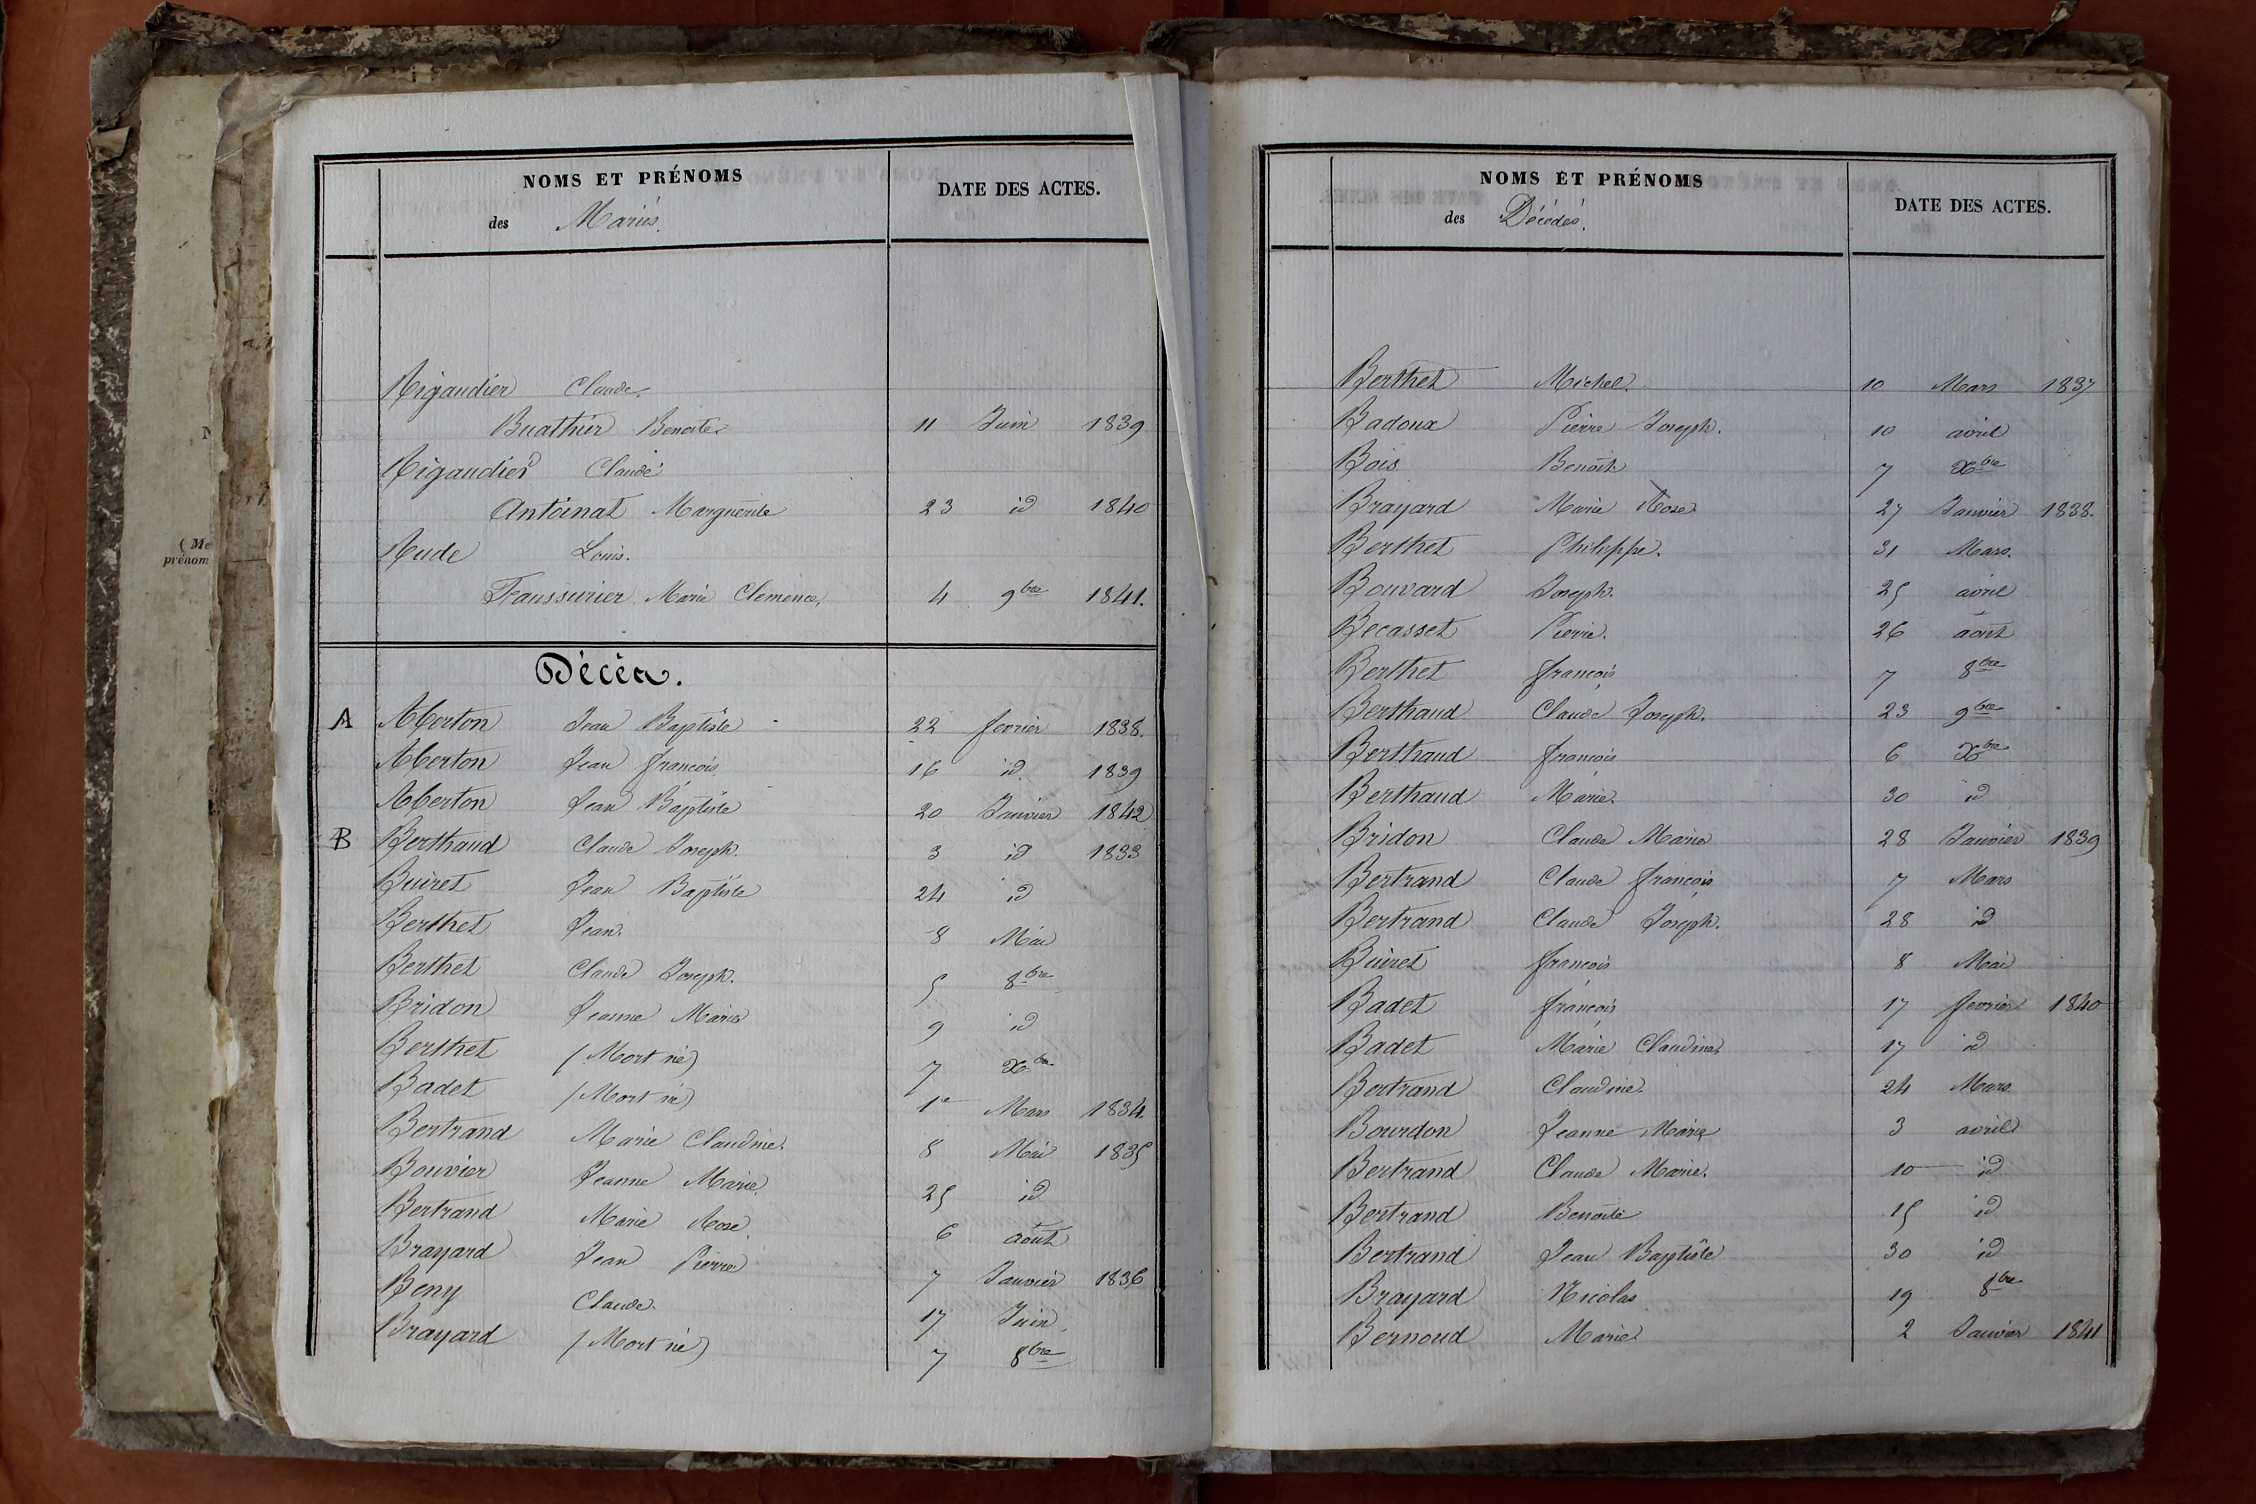 NOMS ET PRÉNOMS
DATE DES ACTES.
des Mariés.
Rigaudier Claude.
Buathier Benoite 11 Juin 1839
Rigaudier Claude
Antoinat Marguerite 23 id 1840
Rude Louis.
Faussurier Marie Clemence, 4 9bre 1841.
Décès.
A Aberton Jean Baptiste 22 fevrier 1838.
Aberton Jean françois 16 id 1839
Aberton Jean Baptiste 20 Janvier 1842
B Berthaud Claude Joseph. 3 id 1833
Buiret Jean Baptiste 24 id
Berthet Jean. 8 Mai
Berthet Claude Joseph. 5 8bre
Bridon Jeanne Marie 9 id
Berthet (Mort né) 7 Xbre
Badet (Mort né) 1er Mars 1834.
Bertrand Marie Claudine. 8 Mai 1835
Bouvier Jeanne Marie 25 id
Bertrand Marie Rose. 6 aout
Brayard Jean Pierre 7 Janvier 1836
Beny Claude. 17 Juin
Brayard (Mort né) 7 8bre
(Me
prénom
NOMS ET PRÉNOMS
DATE DES ACTES.
des Décédés.
Berthet Michel. 10 Mars 1837
Badoux Pierre Joseph. 10 avril
Bois Benoit 7 Xbre
Brayard Marie Rose 27 Janvier 1838.
Berthet Philippe. 31 Mars.
Bouvard Joseph. 25 avril
Becasset Pierre. 26 août
Berthet françois 7 8bre
Berthaud Claude Joseph. 23 9bre
Berthaud françois 6 Xbre
Berthaud Marie 30 id
Bridon Claude Marie 28 Janvier 1839
Bertrand Claude françois 7 Mars
Bertrand Claude Joseph. 28 id
Buiret françois 8 Mai
Badet françois 17 fevrier 1840
Badet Marie Claudine 17 id
Bertrand Claudine. 24 Mars
Bourdon Jeanne Marie 3 avril
Bertrand Claude Marie. 10 id
Bertrand Benoite 15 id
Bertrand Jean Baptiste 30 id
Brayard Nicolas 19 8bre
Bernoud Marie 2 Janvier 1841